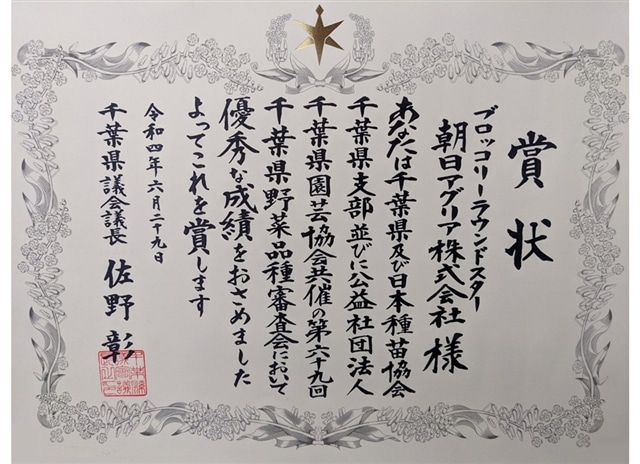 賞状
ブロッコリーラウンドスター
朝日アグリア株式会社 様
あなたは千葉県及び日本種苗協会
千葉県支部並びに公益社団法人
千葉県園芸協会共催の第六十九回
千葉県野菜品種審査会において
優秀な成績をおさめました
よってこれを賞します
令和四年六月二十九日
千葉県議会議長 佐野 彰